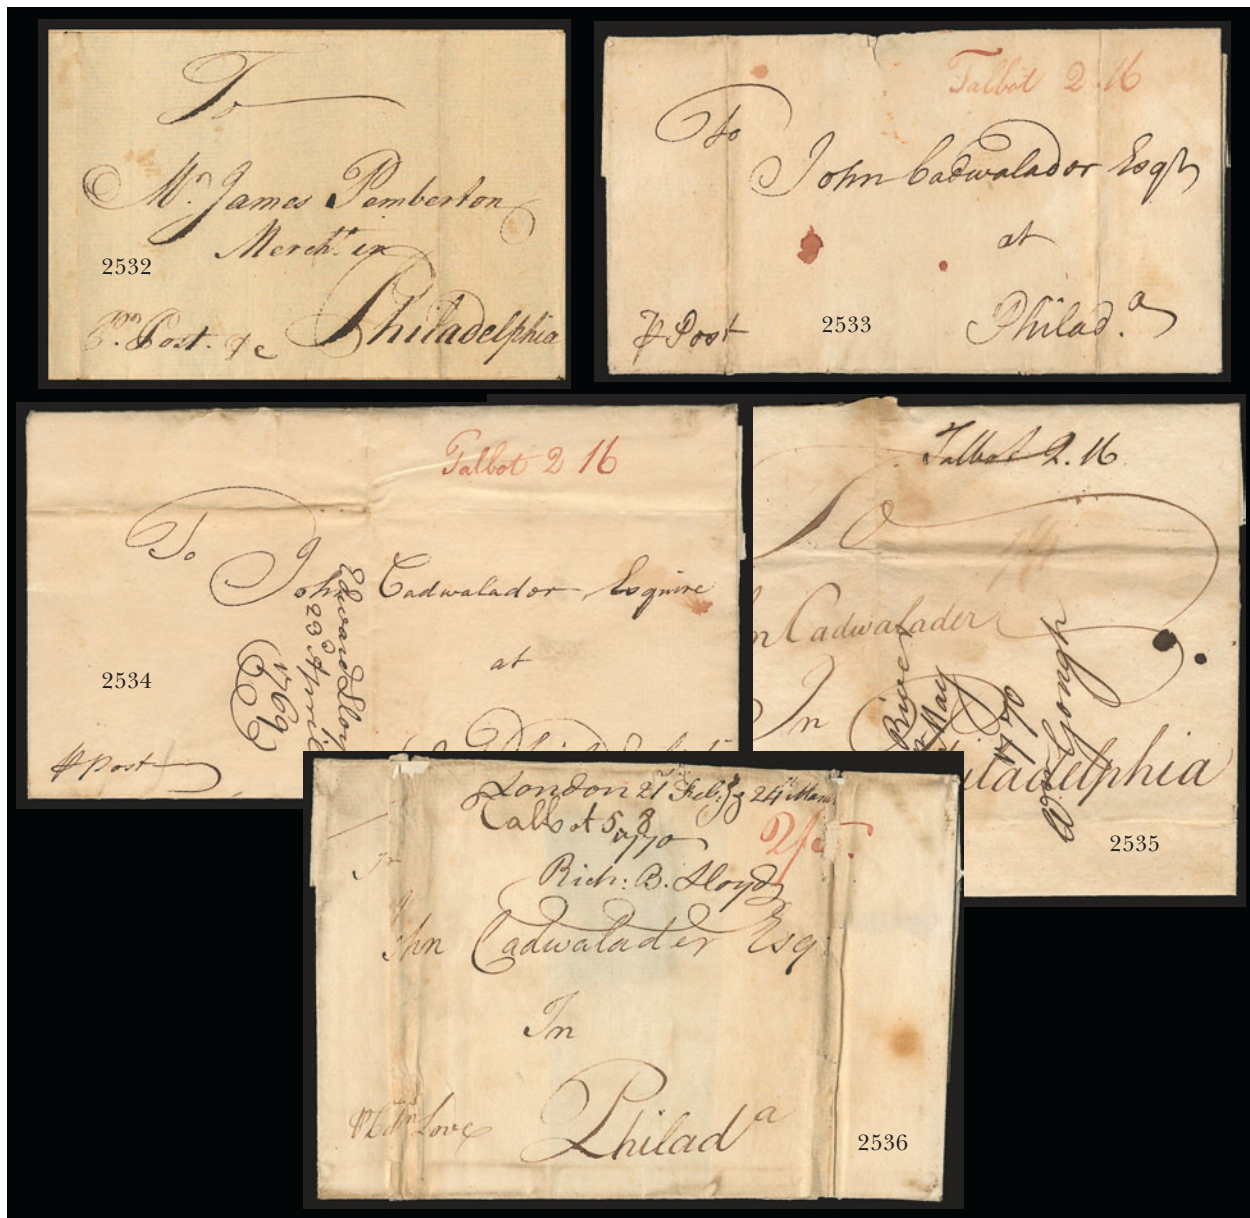 To
Mr. James Pemberton
Mercht. in
Philadelphia
Pr. Post. &c
2532
Talbot 2.16
To
John Cadwalader Esqr
at
Philad.a
P Post
2533
Talbot 2 16
To
John Cadwalador Esquire
at
P Post
Edward Lloyd
23d April
1769
2534
Talbot 2.16
To
n Cadwalader
In
iladelphia
River
May
1770
2535
London 21 Feb. & 24 Mar
Talbot 5.8
1770
Rich: B. Lloyd
John Cadwalader Esq
In
Philada
Love
2536